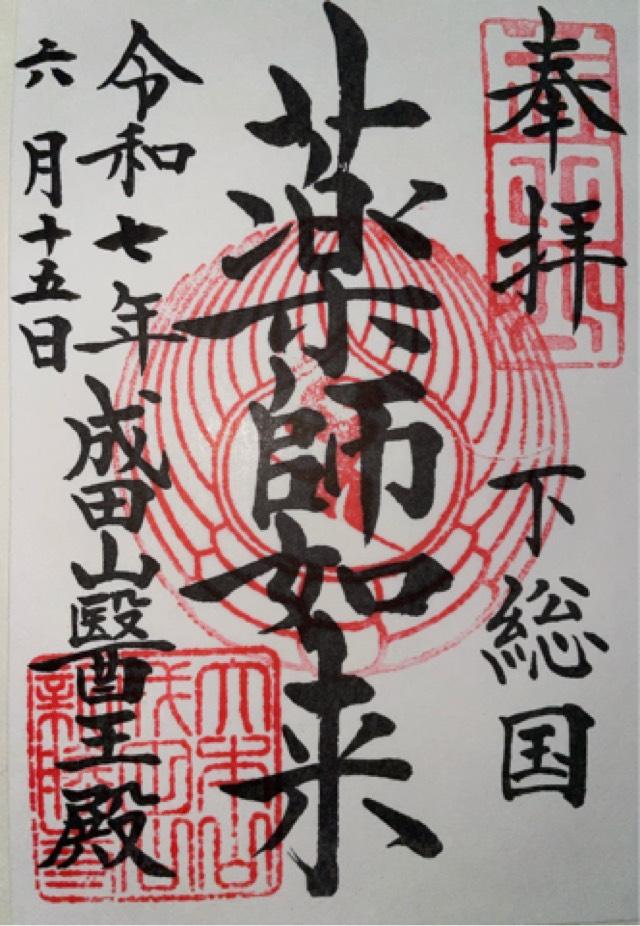 奉拝
下総国
薬師如来
令和七年
六月十五日
成田山醫王殿